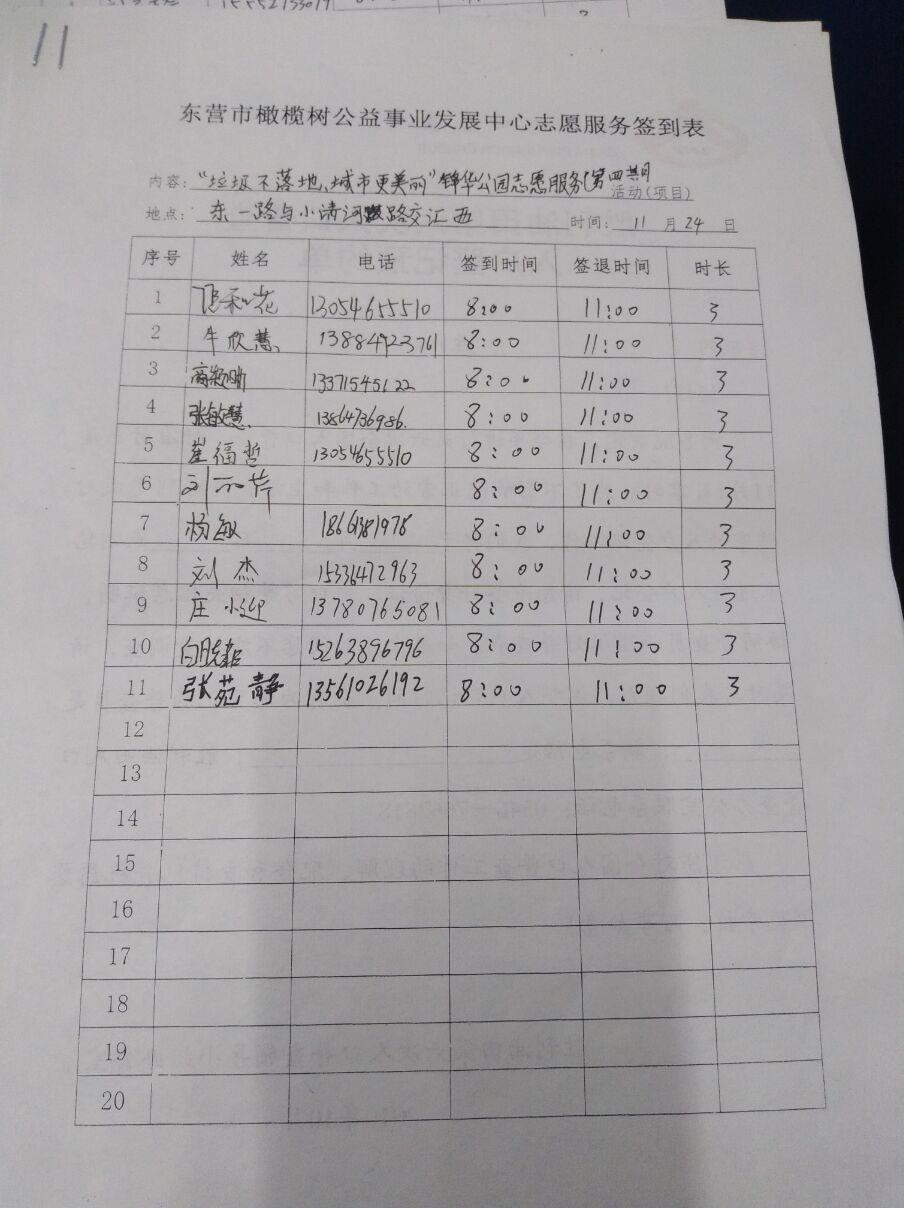 15552133019
11
东营市橄榄树公益事业发展中心志愿服务签到表
内容："垃圾不落地、城市更美丽"锦华公园志愿服务(第四期) 活动(项目)
地点：东一路与小清河路交汇西 时间：11月24日
序号 姓名 电话 签到时间 签退时间 时长
1 13054655510 8:00 11:00 3
2 牛欣慧 13884923761 8:00 11:00 3
3 高颖 13371545122 8:00 11:00 3
4 张敏慧 13864736986. 8:00 11:00 3
5 崔福哲 13054655510 8:00 11:00 3
6 刘 芹 8:00 11:00 3
7 杨敏 18661381978 8:00 11:00 3
8 刘杰 15336472963 8:00 11:00 3
9 庄小迎 13780765081 8:00 11:00 3
10 白 15263896796 8:00 11:00 3
11 张苑静 13561026192 8:00 11:00 3
12
13
14
15
16
17
18
19
20